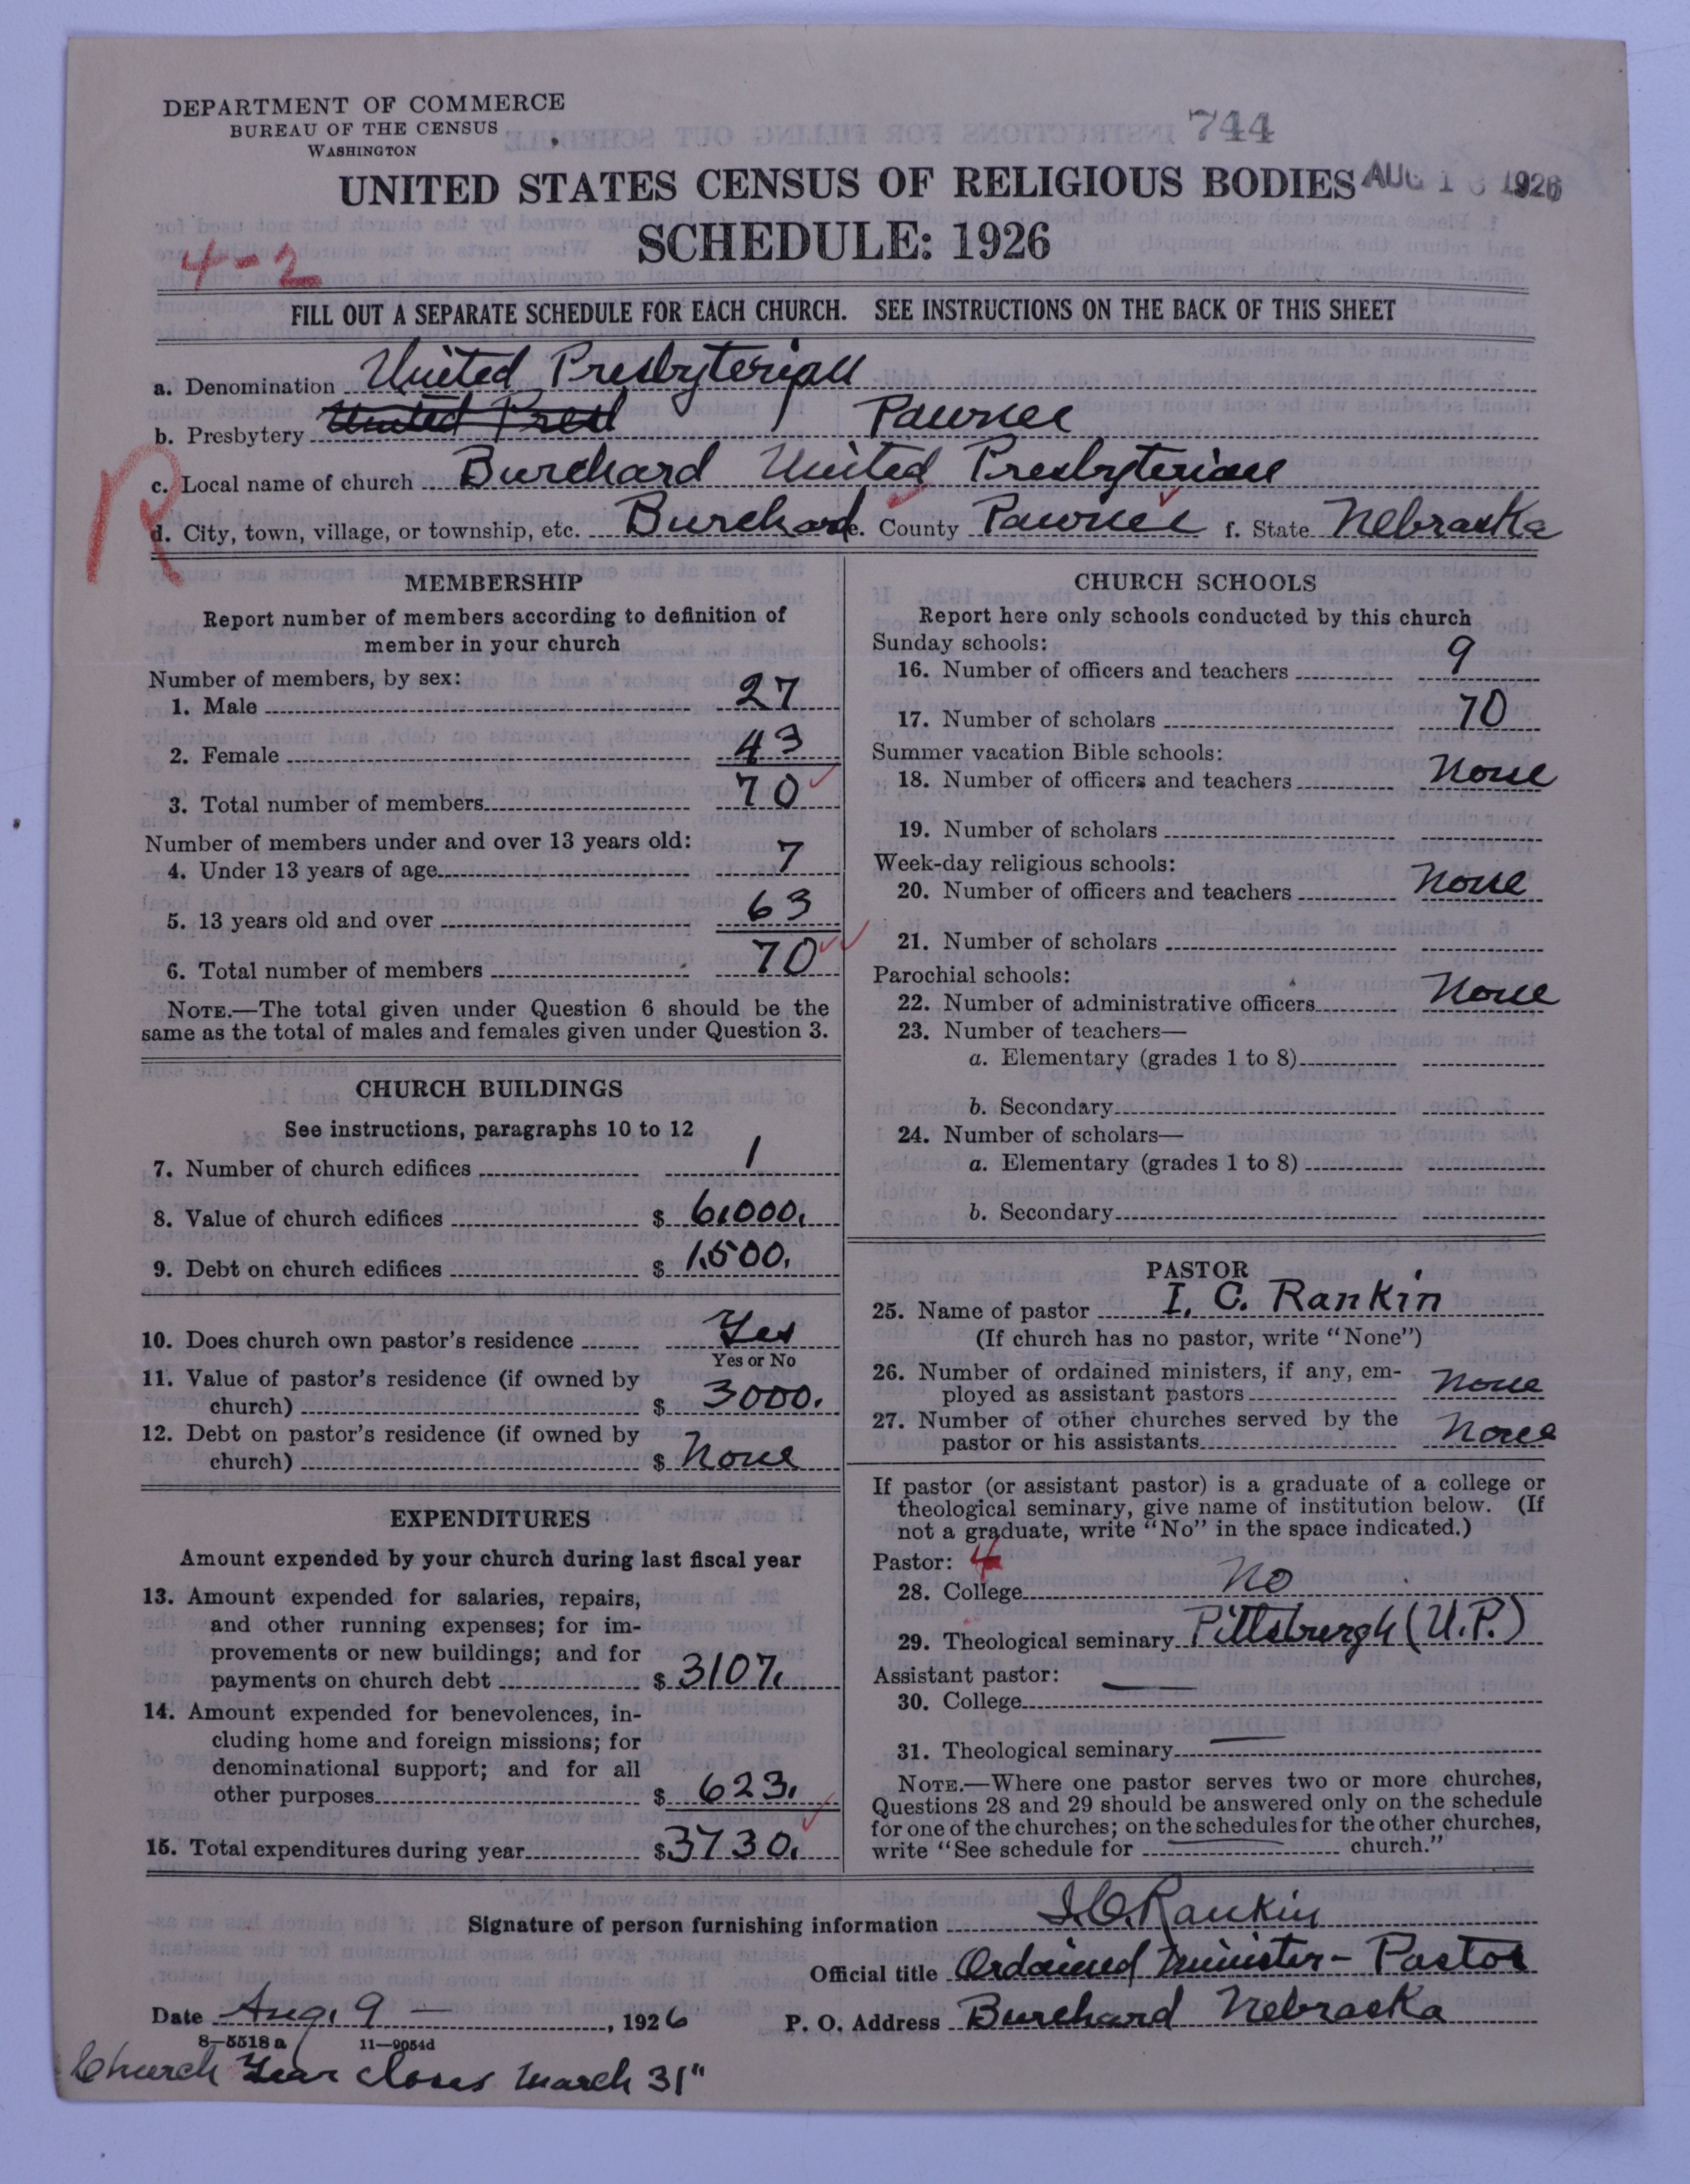 DEPARTMENT OF COMMERCE
BUREAU OF THE CENSUS
WASHINGTON
744
UNITED STATES CENSUS OF RELIGIOUS BODIES AUG 1 1926
SCHEDULE: 1926
4-2
FILL OUT A SEPARATE SCHEDULE FOR EACH CHURCH. SEE INSTRUCTIONS ON THE BACK OF THIS SHEET
a. Denomination United Presbyterian
b. Presbytery United Presb Pawnee
c. Local name of church Burchard United Presbyterian
R
d. City, town, village, or township, etc. Burchard e. County Pawnee f. State Nebraska
MEMBERSHIP
Report number of members according to definition of
member in your church
Number of members, by sex:
1. Male 27
2. Female 43
3. Total number of members 70
Number of members under and over 13 years old:
4. Under 13 years of age 7
5. 13 years old and over 63
6. Total number of members 70
NOTE.—The total given under Question 6 should be the
same as the total of males and females given under Question 3.
CHURCH BUILDINGS
See instructions, paragraphs 10 to 12
7. Number of church edifices 1
8. Value of church edifices $ 6,000.
9. Debt on church edifices $ 1,500.
10. Does church own pastor's residence Yes
Yes or No
11. Value of pastor's residence (if owned by
church) $ 3000.
12. Debt on pastor's residence (if owned by
church) $ None
EXPENDITURES
Amount expended by your church during last fiscal year
13. Amount expended for salaries, repairs,
and other running expenses; for im-
provements or new buildings; and for
payments on church debt $ 3107.
14. Amount expended for benevolences, in-
cluding home and foreign missions; for
denominational support; and for all
other purposes $ 623.
15. Total expenditures during year $ 3730.
CHURCH SCHOOLS
Report here only schools conducted by this church
Sunday schools:
16. Number of officers and teachers 9
17. Number of scholars 70
Summer vacation Bible schools:
18. Number of officers and teachers None
19. Number of scholars
Week-day religious schools:
20. Number of officers and teachers None
21. Number of scholars
Parochial schools:
22. Number of administrative officers None
23. Number of teachers—
a. Elementary (grades 1 to 8)
b. Secondary
24. Number of scholars—
a. Elementary (grades 1 to 8)
b. Secondary
PASTOR
25. Name of pastor I. C. Rankin
(If church has no pastor, write "None")
26. Number of ordained ministers, if any, em-
ployed as assistant pastors None
27. Number of other churches served by the
pastor or his assistants None
If pastor (or assistant pastor) is a graduate of a college or
theological seminary, give name of institution below. (If
not a graduate, write "No" in the space indicated.)
Pastor: 4
28. College No
29. Theological seminary Pittsburgh (U.P.)
Assistant pastor:
30. College
31. Theological seminary
NOTE.—Where one pastor serves two or more churches,
Questions 28 and 29 should be answered only on the schedule
for one of the churches; on the schedules for the other churches,
write "See schedule for church."
Signature of person furnishing information I. C. Rankin
Official title Ordained Minister - Pastor
Date Aug. 9 — , 1926 P. O. Address Burchard Nebraska
8—5518 a 11—9054d
Church Year closes March 31"